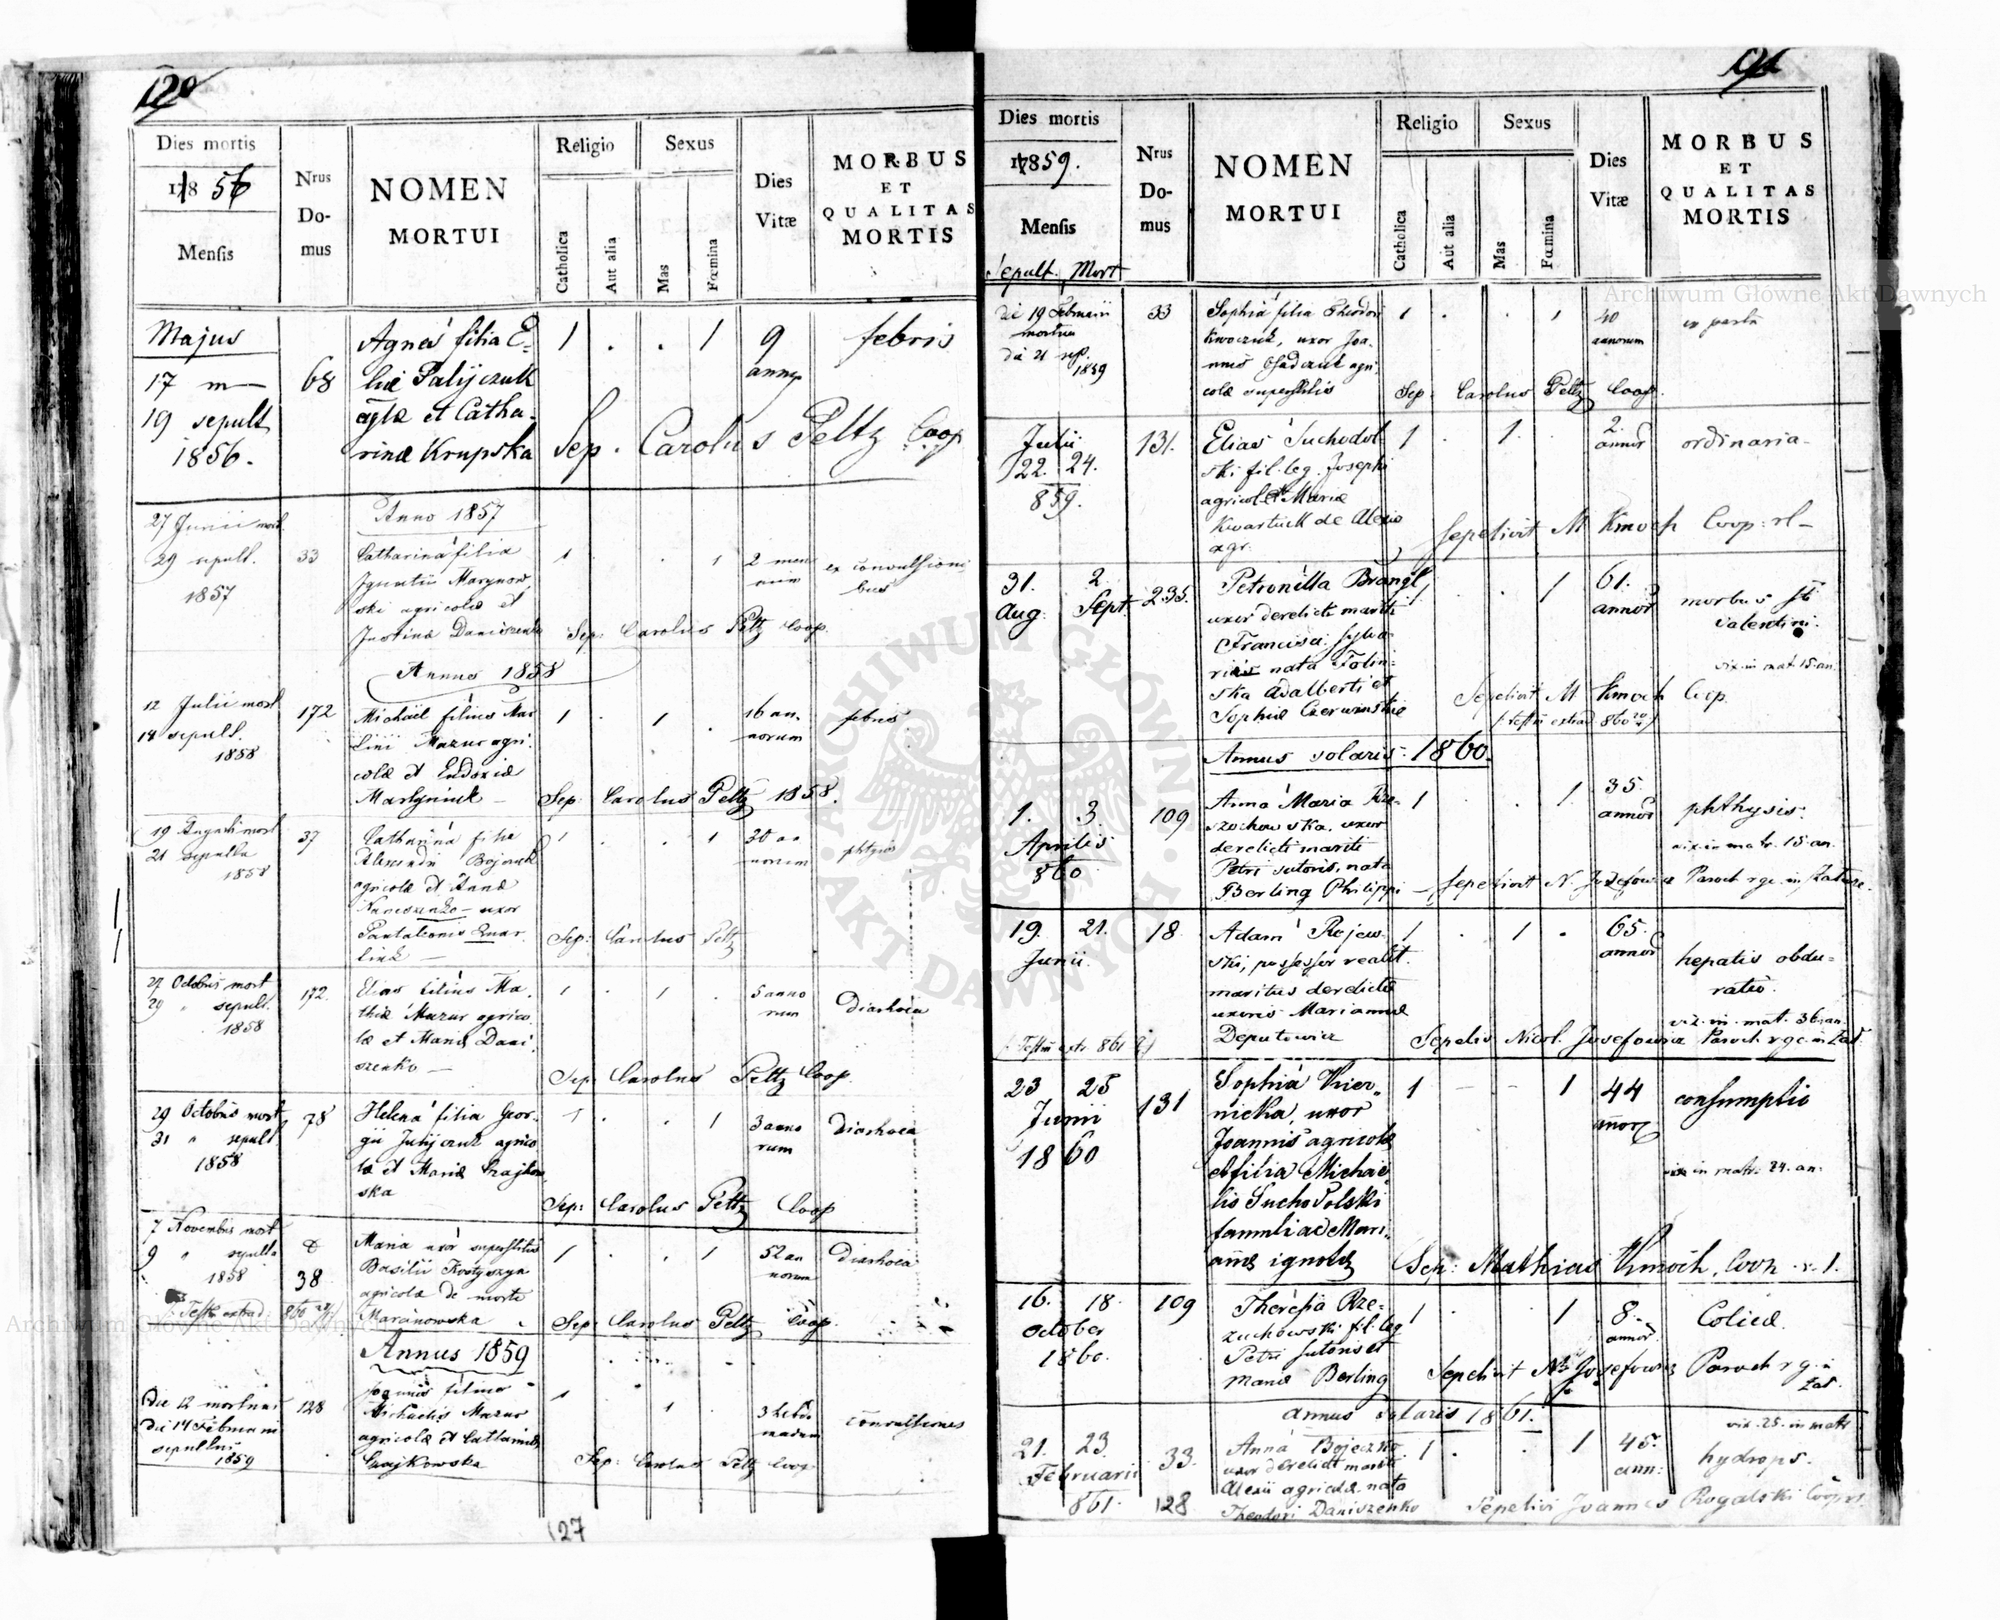 120
Dies mortis
178 56
Mensis
Nrus
Do-
mus
NOMEN
MORTUI
Religio
Catholica
Aut alia
Sexus
Mas
Fœmina
Dies
Vitæ
MORBUS
ET
QUALITAS
MORTIS
Majus
17 m
19 sepult
1856.
68
Agnes filia E-
liæ Palijczuk
aglæ et Catha-
rinæ Krupska
1 . . 1
9
annor
febris
Sep. Carolus Peltz Coop
Anno 1857
27 Junii mort
29 sepult.
1857
33
Catharina filia
Ignatii Marynow
ski agricolæ et
Justina Daniszenko
1 . . 1
2 men
sium
ex convulsioni
bus
Sep: Carolus Peltz Coop.
Annus 1858
12 Julii mort
14 sepult.
1858
172
Michael filius Mar
tini Mazur agri
colæ et Eudoxiæ
Martyniuk
1 . 1 .
16 an
norum
febris
Sep: Carolus Peltz 1858.
19 Augusti mort
21 sepulta
1858
37
Catharina filia
Alexandri Bojczuk
agricolæ et Annæ
uxor
Pantaleonis
1 . . 1
30 an
norum
phtysis
Sep: Carolus Peltz
27 Octobris mort
29 " sepult.
1858
172
Elias filius Ma
thiæ Mazur agrico
læ et Mariæ Dani
szenko
1 . 1 .
5 anno
rum
Diarhoea
Sep: Carolus Peltz Coop.
29 Octobris mort
31 " sepult
1858
78
Helena filia Geor-
gii Julijczuk agrico
læ et Mariæ Czajkow
ska
1 . . 1
3 anno
rum
Diarhoea
Sep: Carolus Peltz Coop
7 Novembris mort
9 " sepulta
1858
38
Maria uxor superstitis
Basilii
agricolæ de morte
Maranowska
1 . . 1
52 an
norum
Diarhoea
Sep: Carolus Peltz Coop.
Annus 1859
Die 12 mortuus
die 14 Februarii
sepultus
1859
128
Joannes filius
Michaelis Mazur
agricolæ et Catharinæ
Czajkowska
1 . 1 .
3 hebdo
madum
convulsiones
Sep: Carolus Peltz Coop
127
121
Dies mortis
17859.
Mensis
Sepult. Mort
Nrus
Do-
mus
NOMEN
MORTUI
Religio
Catholica
Aut alia
Sexus
Mas
Fœmina
Dies
Vitæ
MORBUS
ET
QUALITAS
MORTIS
die 19 Februarii
mortua
die 21 sep.
1859
33
Sophia filia Theodori
Kwoczuk, uxor Joa-
nnis Osadczuk agri
colæ superstitis
1 . . 1
40
annorum
ex partu
Sep: Carolus Peltz Coop.
Julii
22. 24.
859.
131.
Elias Suchodol
ski fil. leg. Josephi
agricolæ et Mariæ
Kwartiuk de Alexio
agr.
1 . 1. .
2.
annor
ordinaria
Sepelivit M Kmoch Coop: rl
31. 2.
Aug. Sept.
235.
Petronilla Brangl
uxor derelicti mariti
Francisci Sylva
riis nata Tolin-
ska Adalberti et
Sophiæ Czerwinskie
1 . . 1
61.
annor
morbus Sti
Valentini.
vix. in mat. 15. an.
Sepelivit M Kmoch Coop.
Annus solaris 1860.
1. 3.
Aprilis
860
109
Anna Maria Rze-
szchowska, uxor
derelicti mariti
Petri sutoris, nata
Berling Philippi
1 . . 1.
35.
annor
phthysis
vix in matr. 15. an.
Sepelivit N. Jozefowicz Paroch rgc. in Zalucze.
19. 21.
Junii.
18.
Adam Rojew-
ski, possessor realit.
maritus derelictæ
uxoris Mariannæ
Deputowicz
1 . 1 .
65.
annor
hepatis obdu-
ratio.
vix. in mat. 36. an.
Sepeliv Nicol. Jusefowicz Paroch rgc. in Zal.
23 25
Junii
1860
131
Sophia Wier-
nicka, uxor
Joannis agricolæ
et filia Michae-
lis Suchodolski
famuli ac Mari-
annæ ignotæ
1 - - 1
44
annor
consumptio
vix in matr. 24. an.
Sep: Mathias Kmoch, Coop. r. l.
16. 18.
October
1860.
109
Theresia Rze-
zuchowski fil. leg
Petri sutoris et
Mariæ Berling
1 . . 1
8.
annor
Colica.
Sepelivit Nic Josefowicz Paroch r g. in
Zal.
annus solaris 1861.
21. 23.
Februarii
861.
33.
128
Anna Bojeczko
uxor derelicti mariti
Alexii agricolæ nata
Theodori Daniszenko
1 . . 1
45.
ann:
vix. 25. in matr
hydrops.
Sepelivi Joannes Rogalski Coop. rl.
Archiwum Główne Akt Dawnych
Archiwum Główne Akt Dawnych
ARCHIWUM GŁÓWNE AKT DAWNYCH